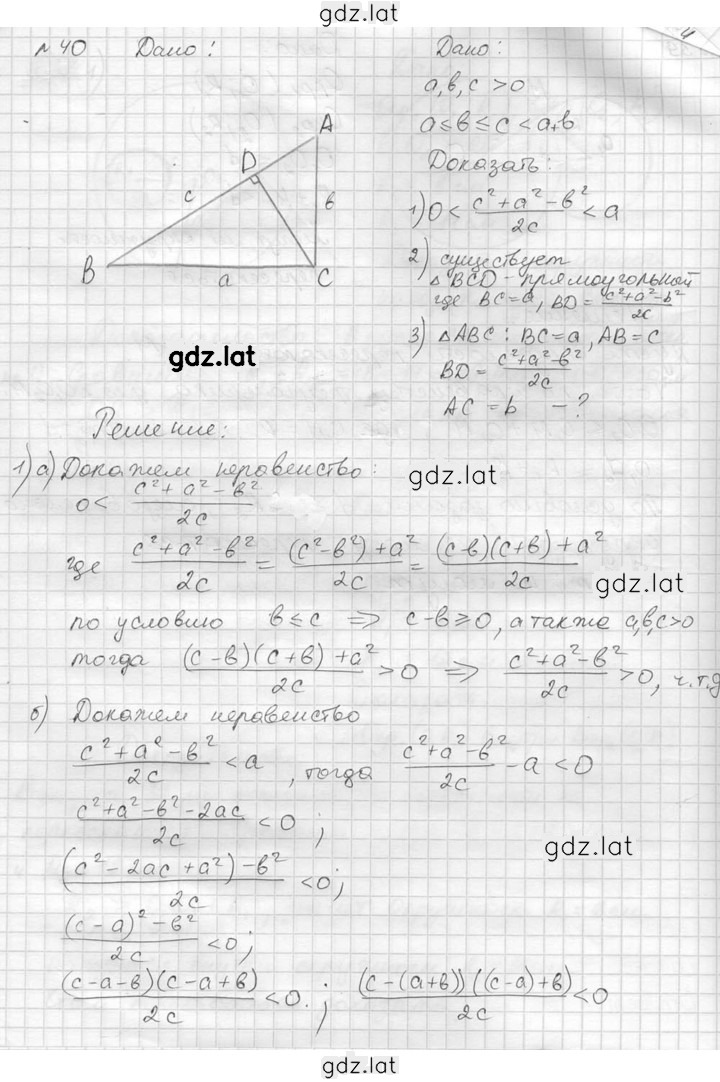 gdz.lat
№ 40 Дано:
A
D
c
в
B
a
C
gdz.lat
Дано:
a, в, c > 0
a ≤ в ≤ c < a+в
Доказать:
1) 0 < (c² + a² − в²)/2c < a
2) существует
△ BCD - прямоугольной
где BC = a, BD = (c² + a² − b²)/2c
3) △ABC : BC = a, AB = c
BD = (c² + a² − в²)/2c
AC = b - ?
Решение:
1) а) Докажем неравенство:
gdz.lat
0 < (c² + a² − в²)/2c
где (c² + a² − в²)/2c = ((c² − в²) + a²)/2c = ((c − в)(c + в) + a²)/2c
gdz.lat
по условию в ≤ c ⇒ c − в ≥ 0, а также a, в, c > 0
тогда ((c − в)(c + в) + a²)/2c > 0 ⇒ (c² + a² − в²)/2c > 0, ч.т.д
б) Докажем неравенство
(c² + a² − в²)/2c < a, тогда (c² + a² − в²)/2c − a < 0
(c² + a² − в² − 2ac)/2c < 0 ;
gdz.lat
((c² − 2ac + a²) − в²)/2c < 0 ;
((c − a)² − в²)/2c < 0 ;
((c − a − в)(c − a + в))/2c < 0. ; ((c − (a + в))((c − a) + в))/2c < 0
gdz.lat